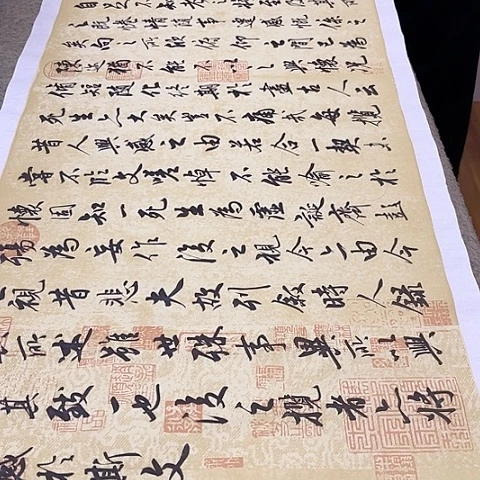 自足不知老之將至及其所
之既惓情隨事遷感慨係之
矣向之所欣俛仰之間已為
陳迹猶不能不以之興懷況
脩短隨化終期於盡古人云
死生亦大矣豈不痛哉每攬
昔人興感之由若合一契未
嘗不臨文嗟悼不能喻之於
懷固知一死生為虛誕齊彭
殤為妄作後之視今亦由今
之視昔悲夫故列敘時人錄
其所述雖世殊事異所以興
其致一也後之攬者亦將
感於斯文